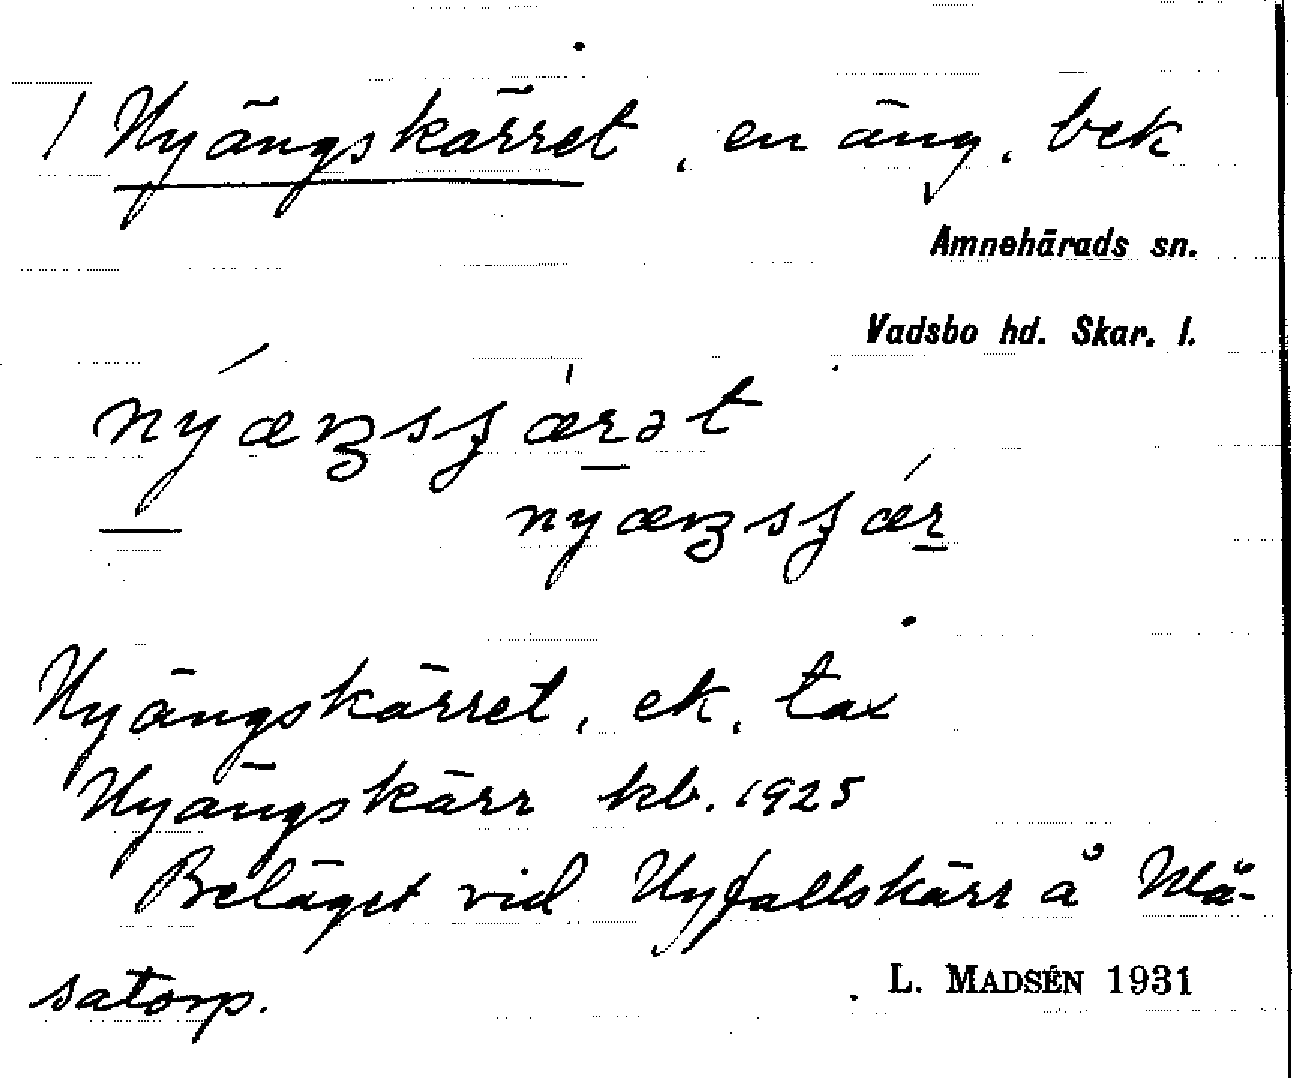 / Nyängskärret, en äng, bek
Amnehärads sn.
Vadsbo hd. Skar. l.
Nyängskärret, ek, tax
Nyängskärr kb. 1925
Beläget vid Nyfallskärr å Må-
satorp.
L. MADSÉN 1931